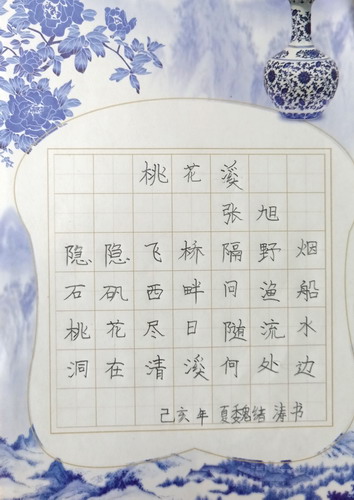 桃花溪
张旭
隐隐飞桥隔野烟
石矶西畔问渔船
桃花尽日随流水
洞在清溪何处边
己亥年 夏魏结涛书